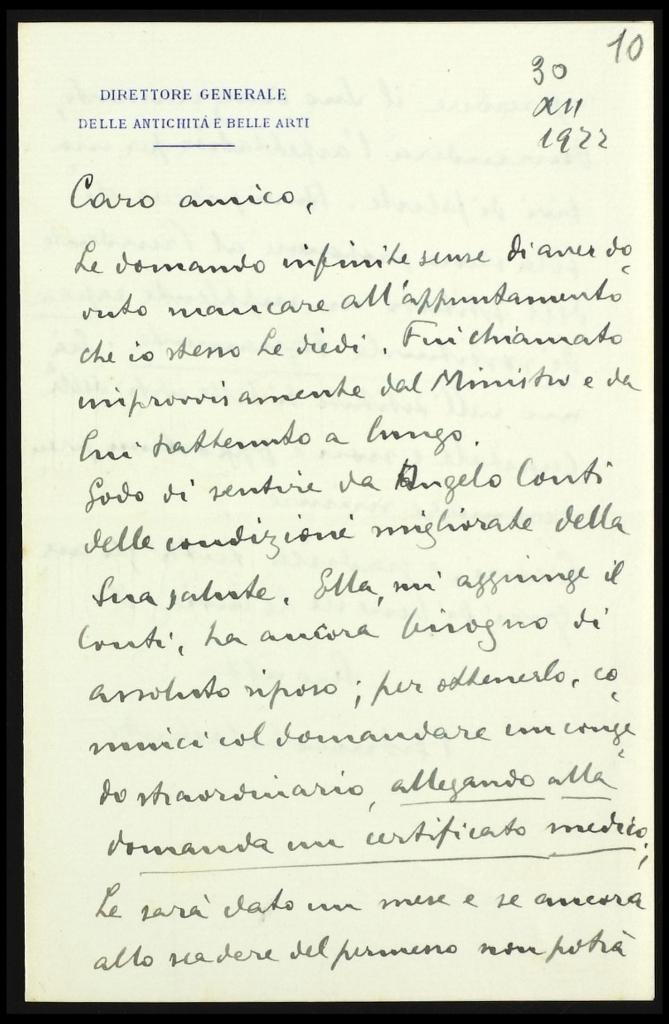 10
30
XII
1922
DIRETTORE GENERALE
DELLE ANTICHITÀ E BELLE ARTI
Caro amico,
Le domando infinite scuse di aver do
vuto mancare all'appuntamento
che io stesso Le diedi. Fui chiamato
improvvisamente dal Ministro e da
lui trattenuto a lungo.
Godo di sentire da Angelo Conti
delle condizioni migliorate della
Sua salute. Ella, mi aggiunge il
Conti, ha ancora bisogno di
assoluto riposo; per ottenerlo, co
minci col domandare un conge
do straordinario, allegando alla
domanda un certificato medico;
Le sarà dato un mese e se ancora
allo scadere del permesso non potrà